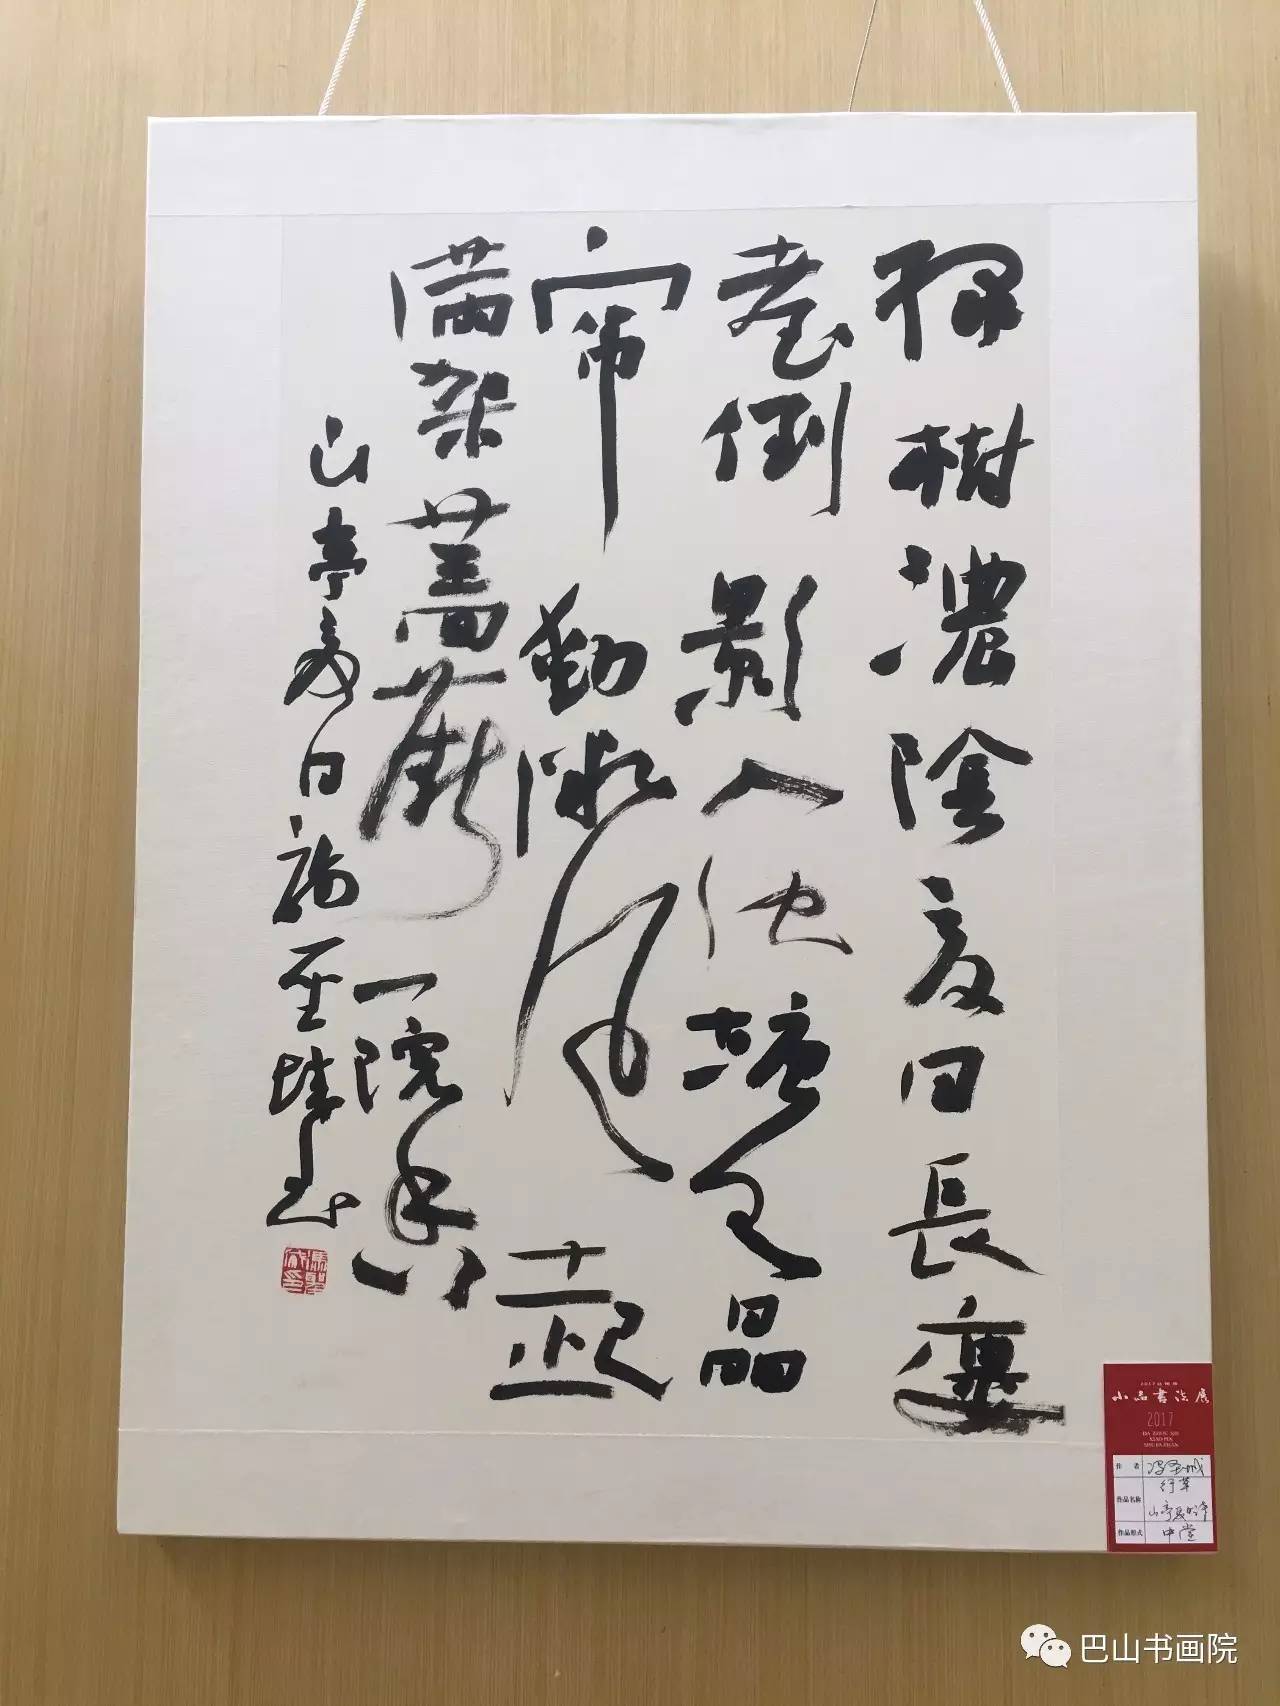 緑樹濃陰夏日長樓
臺倒影入池塘水晶
帘動微風起
满架薔薇一院香
山亭夏日 馮聖城書
小品書法展
2017
DA ZHOU SHI
XIAO PIN
SHU FA ZHAN
作者 冯圣城
作品名称 行草 山亭夏日诗
作品形式 中堂
巴山书画院